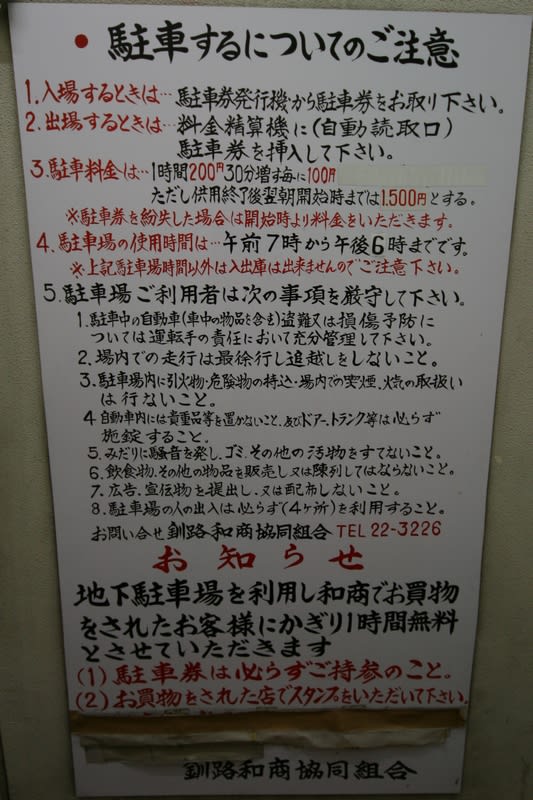 ・駐車するについてのご注意
1.入場するときは…駐車券発行機から駐車券をお取り下さい。
2.出場するときは…料金精算機に(自動読取口)
駐車券を挿入して下さい。
3.駐車料金は…1時間200円30分増す毎に100円
ただし供用終了後翌朝開始時までは1,500円とする。
※駐車券を紛失した場合は開始時より料金をいただきます。
4.駐車場の使用時間は…午前7時から午後6時までです。
※上記駐車場時間以外は入出庫は出来ませんのでご注意下さい。
5.駐車場ご利用者は次の事項を厳守して下さい。
1.駐車中の自動車(車中の物品を含む)盗難又は損傷予防に
ついては運転手の責任において充分管理して下さい。
2.場内での走行は最徐行し追越しをしないこと。
3.駐車場内に引火物・危険物の持込・場内での喫煙、火気の取扱い
は行ないこと。
4自動車内には貴重品等を置かないこと、及びドアー、トランク等は必らず
施錠すること。
5.みだりに騒音を発し、ゴミ、その他の汚物をすてないこと。
6.飲食物、その他の物品を販売し又は陳列してはならないこと。
7.広告、宣伝物を提出し、又は配布しないこと。
8.駐車場の人の出入は必らず(4ヶ所)を利用すること。
お問い合せ 釧路和商協同組合 TEL 22-3226
お知らせ
地下駐車場を利用し和商でお買物
をされたお客様にかぎり1時間無料
とさせていただきます
(1)駐車券は必らずご持参のこと。
(2)お買物をされた店でスタンプをいただいて下さい。
釧路和商協同組合